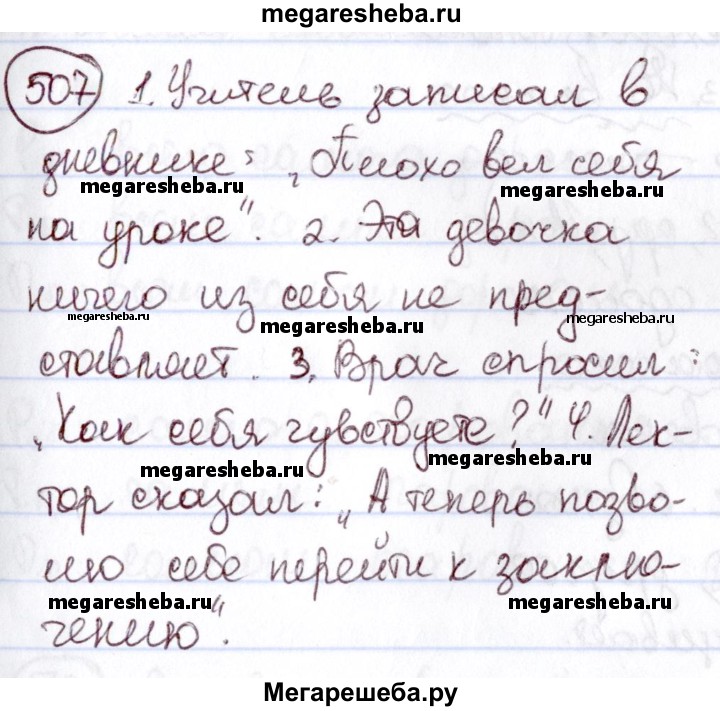 megaresheba.ru
507 1. Учитель записал в
дневнике: „Плохо вел себя
megaresheba.ru megaresheba.ru
на уроке“. 2. Эта девочка
ничего из себя не пред-
megaresheba.ru megaresheba.ru megaresheba.ru
ставляет. 3. Врач спросил:
„Как себя чувствуете?“ 4. Лек-
megaresheba.ru megaresheba.ru
тор сказал: „А теперь позво-
лю себе перейти к заклю-
megaresheba.ru megaresheba.ru
чению“.
Мегарешеба.ру